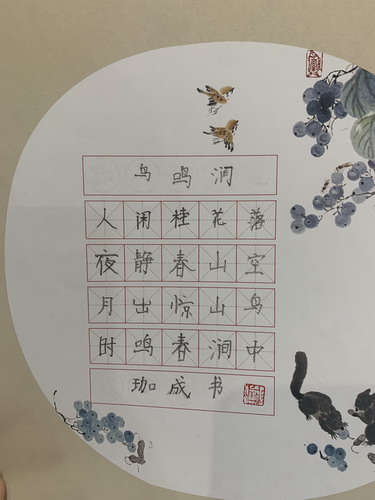 鸟鸣涧
人闲桂花落
夜静春山空
月出惊山鸟
时鸣春涧中
珈成书